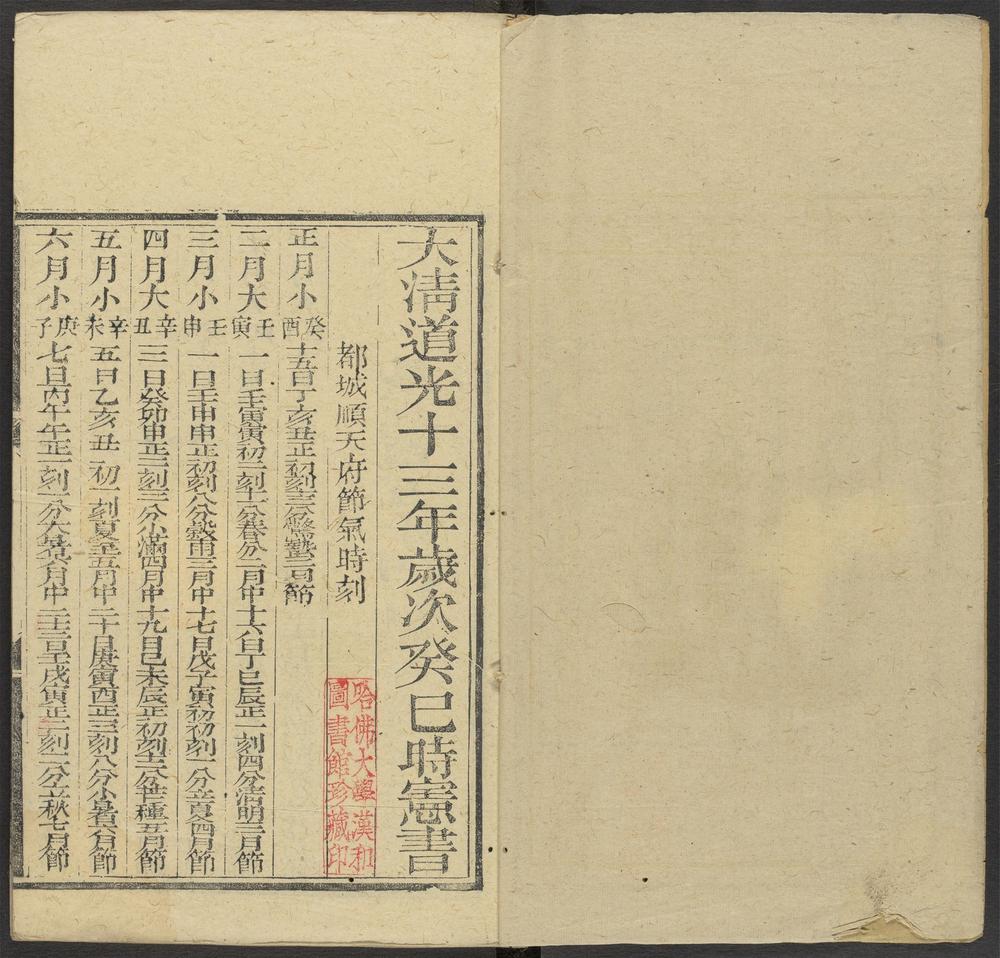 大清道光十三年歲次癸巳時憲書
都城順天府節氣時刻
哈佛大學漢和
圖書館珍藏印
正月小癸酉十五日丁亥丑正初刻十三分驚蟄二月節
二月大壬寅一日壬寅寅初二刻十二分春分二月中十六日丁巳辰正一刻四分清明三月節
三月小壬申一日壬申申正初刻八分穀雨三月中十七日戊子寅初初刻一分立夏四月節
四月大辛丑三日癸卯申正二刻三分小滿四月中十九日己未辰正初刻十三分芒種五月節
五月小辛未五日乙亥丑初一刻夏至五月中二十日庚寅酉正三刻八分小暑六月節
六月小庚子七日丙午午正一刻一分大暑六月中二十三日壬戌寅正二刻二分立秋七月節